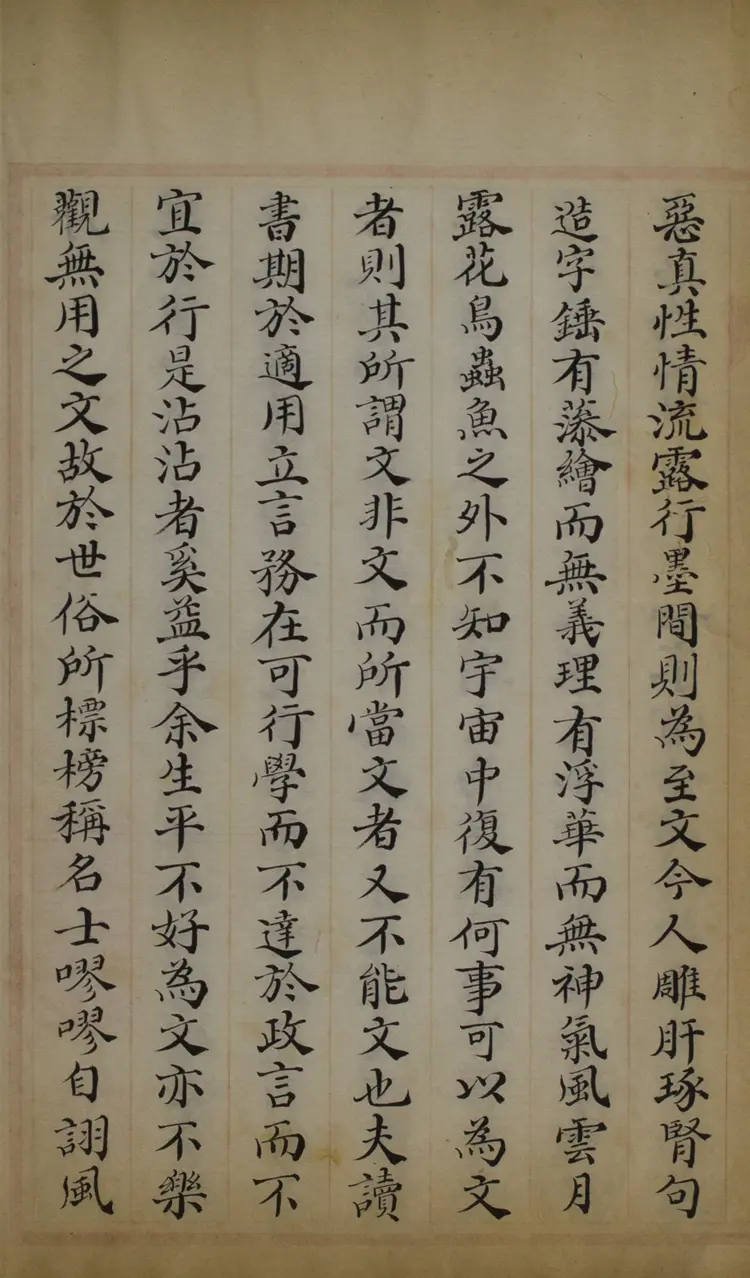 惡真性情流露行墨間則為至文今人雕肝琢腎句
造字錘有藻繪而無義理有浮華而無神氣風雲月
露花鳥蟲魚之外不知宇宙中復有何事可以為文
者則其所謂文非文而所當文者又不能文也夫讀
書期於適用立言務在可行學而不達於政言而不
宜於行是沾沾者奚益乎余生平不好為文亦不樂
觀無用之文故於世俗所標榜稱名士嘐嘐自詡風